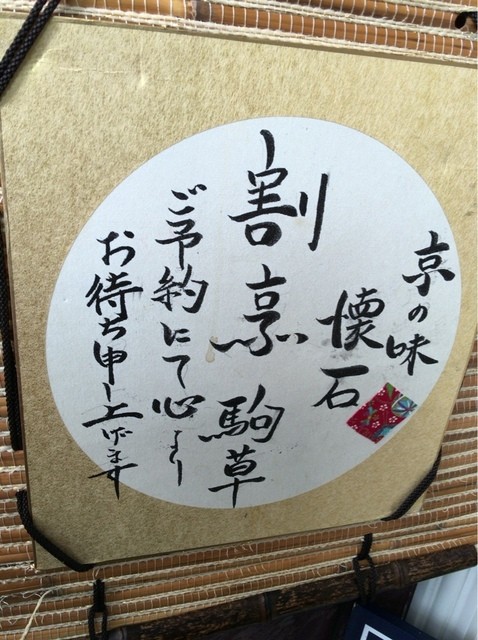 京の味
懐石
割烹 駒草
ご予約にて心より
お待ち申し上げます